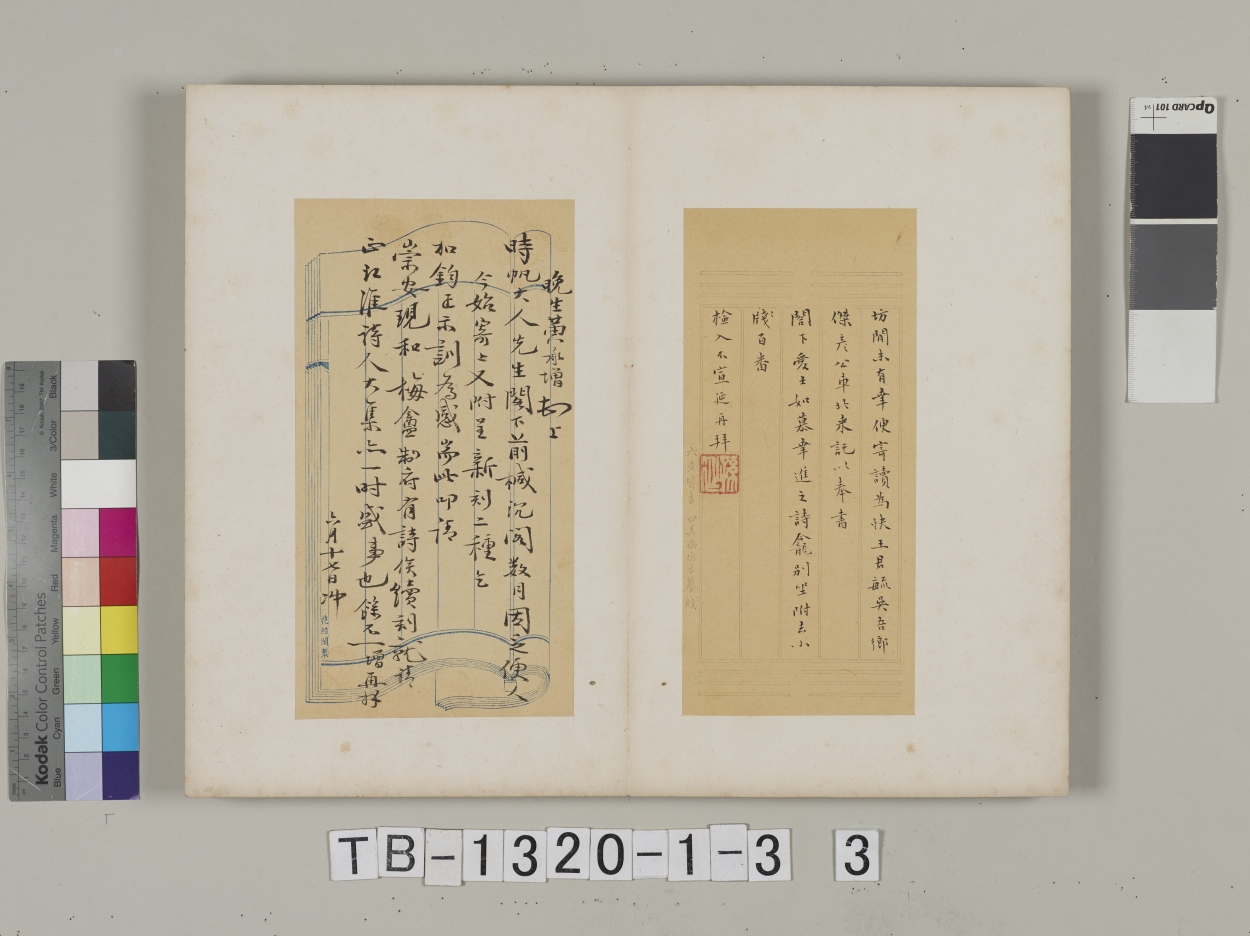 坊間未有幸便寄讀為快王君毓吳吾鄉
傑彥公車北來託以奉書
閣下愛士如慕幸進之詩龕別坐附去小
牋百番
檢入不宣 再拜
晚生黃承增 上
時帆大人先生閣下前椷沉閣數月因乏便人
今始寄上又附呈新刻二種乞
和鈞正示訓為感耑此叩請
崇安現和梅盦制府有詩俟續刻就請
正江淮詩人大集亦一時盛事也餘不一增再拜
六月十七日沖
Kodak Color Control Patches
© Kodak
Blue
Cyan
Green
Yellow
Red
Magenta
White
3/Color
Black
QPCARD 101 v4
TB-1320-1-3 3